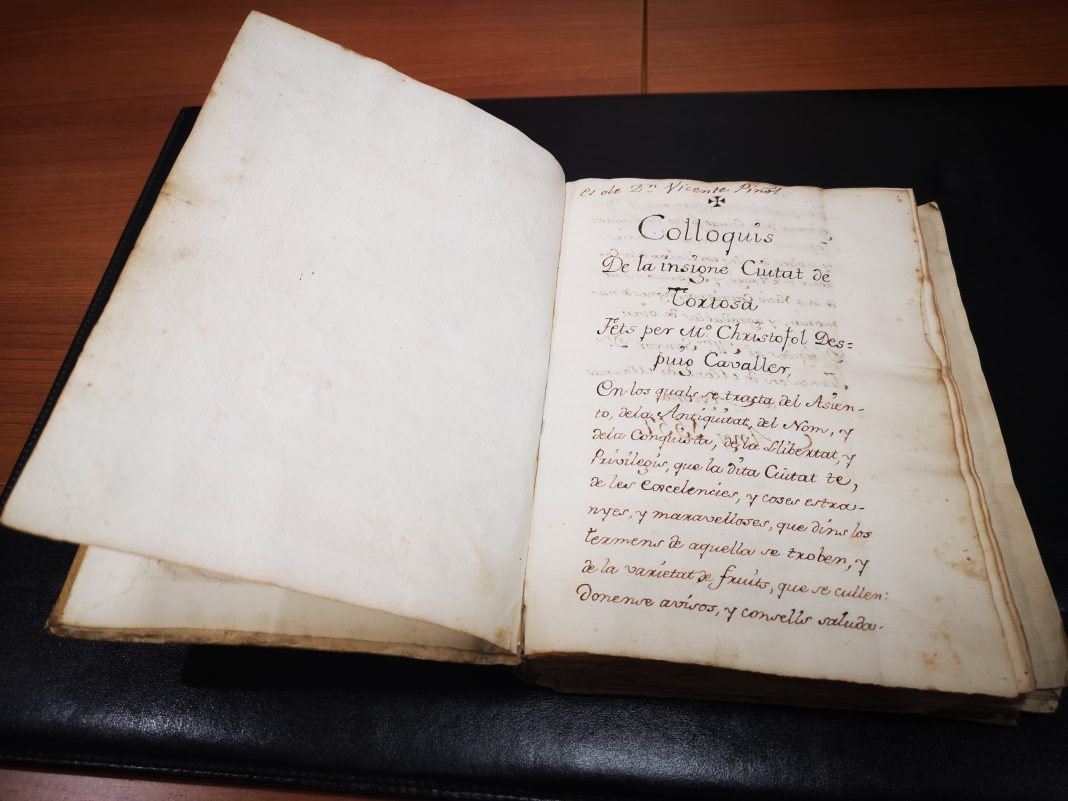 es de Dn. Vicente Piñol.
Colloquis
De la insigne Ciutat de
Tortosa
Fets per Mo. Christofol Des=
puig Cavaller,
En los quals se tracta del Asien-
to, dela Antiquitat del Nom, y
dela Conquista, de la Llibertat, y
Privilegis, que la dita Ciutat te,
de les Excelencies, y coses estra-
nyes, y maravelloses, que dins los
termens de aquella se troben, y
de la varietat de fruits, que se cullen:
Donense avisos, y consells saluda-